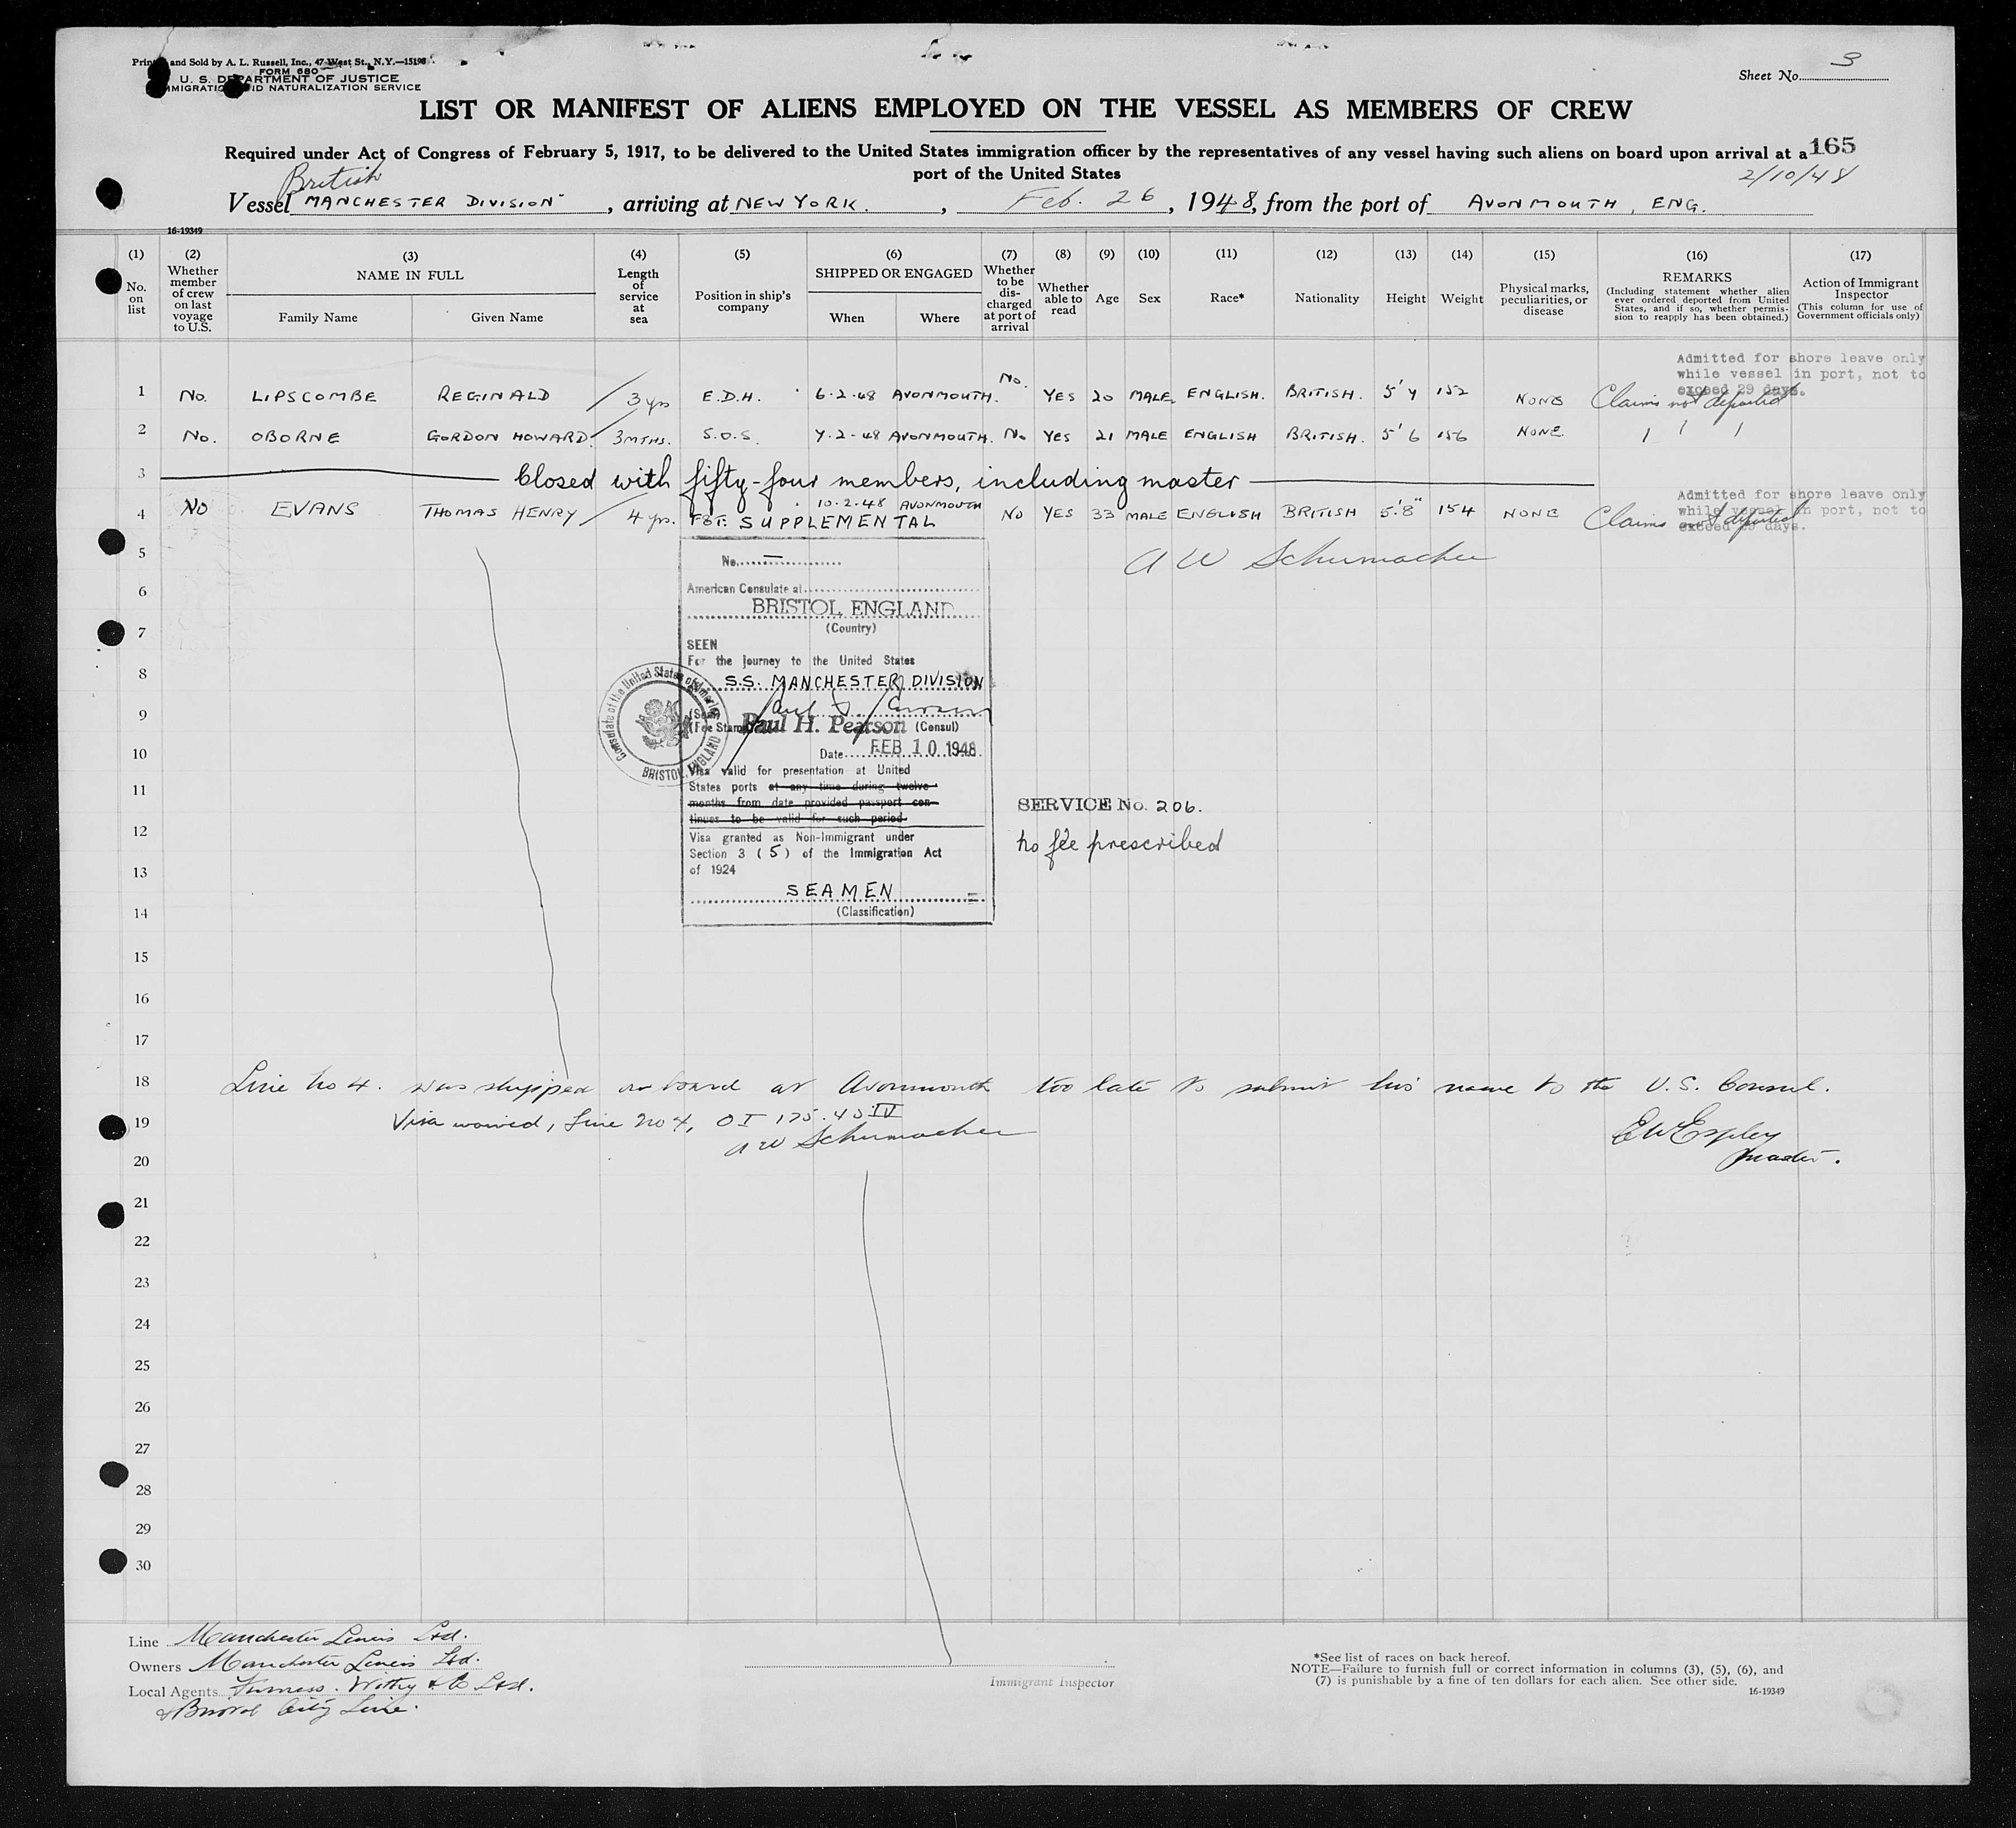 Sheet No. 3
and Sold by A. L. Russell, Inc., 47 West St., N.Y.—15198
FORM 680
U. S. DEPARTMENT OF JUSTICE
IMMIGRATION AND NATURALIZATION SERVICE
LIST OR MANIFEST OF ALIENS EMPLOYED ON THE VESSEL AS MEMBERS OF CREW
Required under Act of Congress of February 5, 1917, to be delivered to the United States immigration officer by the representatives of any vessel having such aliens on board upon arrival at a 165
port of the United States
2/10/48
British
Vessel MANCHESTER DIVISION, arriving at NEW YORK., Feb. 26, 1948, from the port of AVONMOUTH, ENG.
16-19349
(1) (2) (3) (4) (5) (6) (7) (8) (9) (10) (11) (12) (13) (14) (15) (16) (17)
No. on list
Whether member of crew on last voyage to U.S.
NAME IN FULL
Family Name Given Name
Length of service at sea
Position in ship's company
SHIPPED OR ENGAGED
When Where
Whether to be discharged at port of arrival
Whether able to read
Age
Sex
Race*
Nationality
Height
Weight
Physical marks, peculiarities, or disease
REMARKS
(Including statement whether alien ever ordered deported from United States, and if so, whether permission to reapply has been obtained.)
Action of Immigrant Inspector
(This column for use of Government officials only)
Admitted for shore leave only
while vessel in port, not to
exceed 29 days.
1 No. LIPSCOMBE REGINALD 3 yrs E.D.H. 6.2.48 AVONMOUTH. No. YES 20 MALE ENGLISH. BRITISH. 5'4 152 NONE Claims not deported
2 No. OBORNE GORDON HOWARD. 3 MTHS. S.O.S. 4.2.48 AVONMOUTH. No YES 21 MALE ENGLISH BRITISH. 5'6 156 NONE
3 Closed with fifty-four members, including master
Admitted for shore leave only
while vessel in port, not to
exceed 29 days.
4 NO EVANS THOMAS HENRY 4 yrs. 10.2.48 AVONMOUTH NO YES 33 MALE ENGLISH BRITISH 5'.8" 154 NONE Claims not deported
SUPPLEMENTAL
A W Schumacher
5
6
7
8
9
10
11
12
13
14
15
16
17
No. —
American Consulate at
BRISTOL, ENGLAND
(Country)
SEEN
For the journey to the United States
S.S. MANCHESTER DIVISION
(Seal)
(Fee Stamp) Paul H. Pearson (Consul)
Date FEB 10 1948
Visa valid for presentation at United
States ports at any time during twelve
months from date provided passport con-
tinues to be valid for such period.
Visa granted as Non-Immigrant under
Section 3 (5) of the Immigration Act
of 1924
SEAMEN
(Classification)
Consulate of the United States of America
BRISTOL, ENGLAND
SERVICE No. 206.
no fee prescribed
18 Line No 4. was shipped on board at Avonmouth too late to submit his name to the U.S. Consul.
19 Visa waived, Line No 4, OI 175.43 IV
A W Schumacher
E W Espley
Master.
20
21
22
23
24
25
26
27
28
29
30
Line Manchester Liners Ltd.
Owners Manchester Liners Ltd.
Local Agents Furness. Withy & Co Ltd.
& Bristol City Line.
Immigrant Inspector
*See list of races on back hereof.
NOTE—Failure to furnish full or correct information in columns (3), (5), (6), and
(7) is punishable by a fine of ten dollars for each alien. See other side.
16-19349